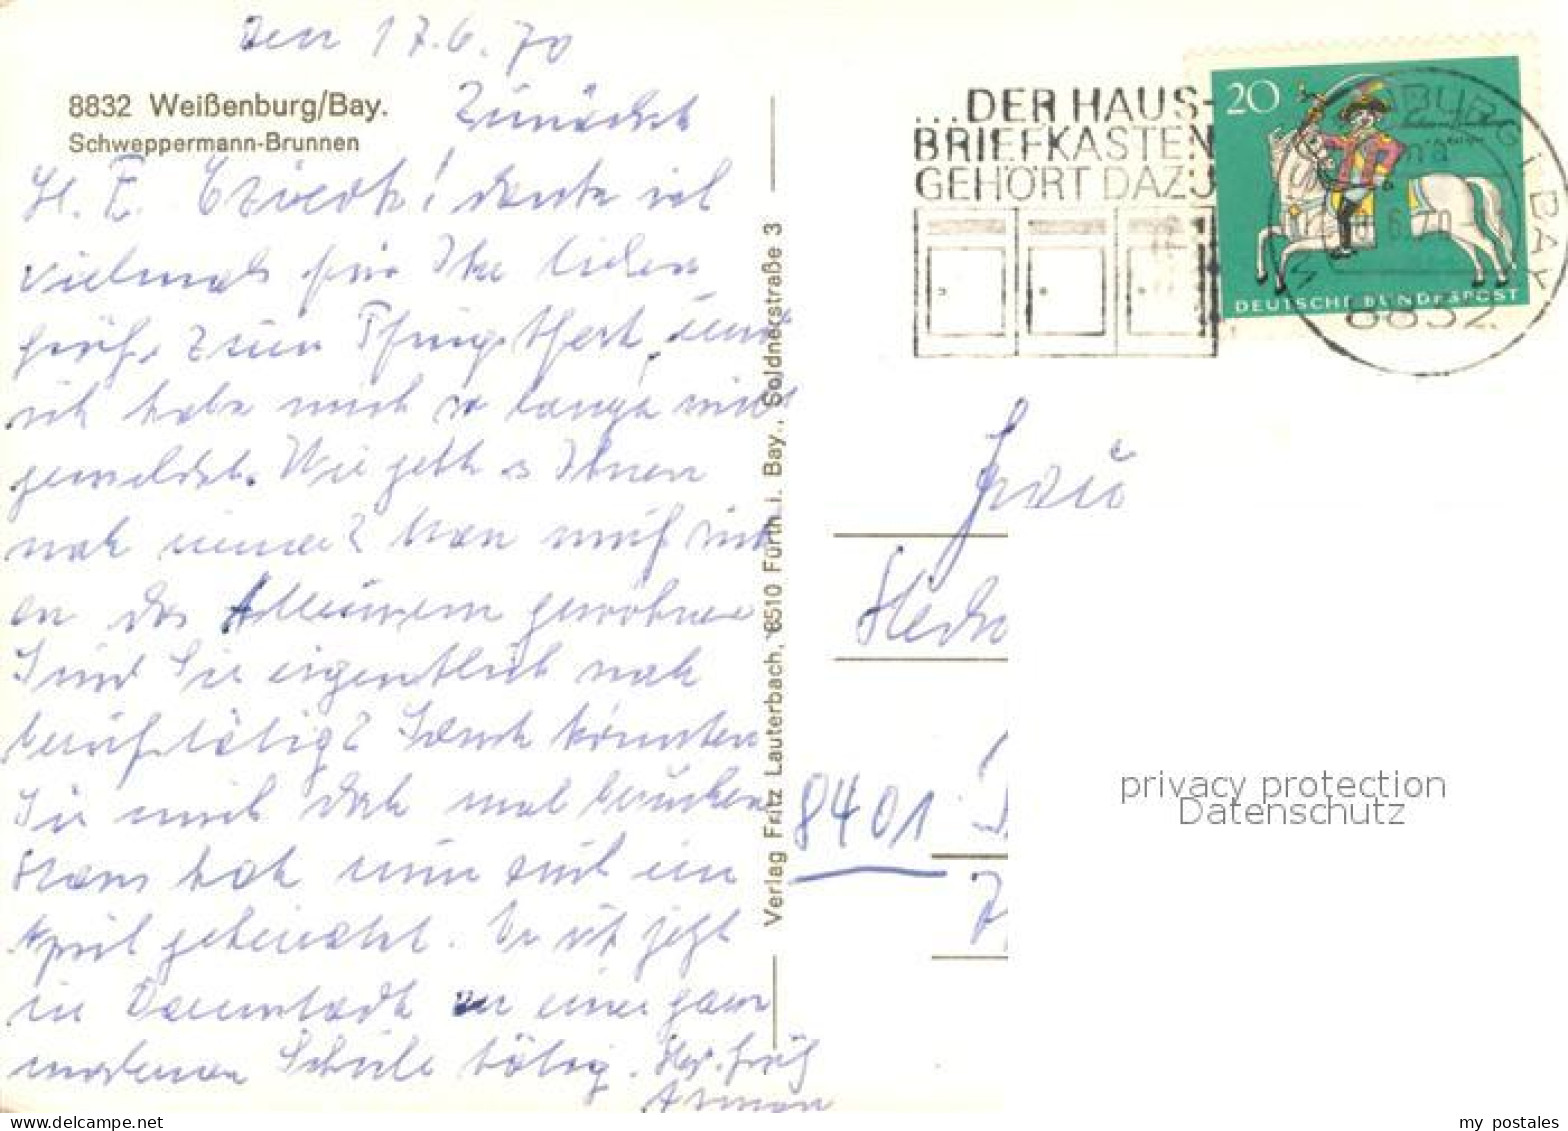 Den 17.6.70
8832 Weißenburg/Bay.
Schweppermann-Brunnen
Zunächst
danke ich
vielmals für Ihre lieben
Grüße zum Pfingstfest, und
ich habe mich so lange nicht
gemeldet. Wie geht es Ihnen
noch immer? Man muß sich
an das Alleinsein gewöhnen
Sind Sie eigentlich noch
berufstätig? Sonst könnten
Sie mich doch mal besuchen
Hans hat nun auch im
April geheiratet. Er ist jetzt
in Darmstadt an einer ganz
modernen Schule tätig.
Verlag Fritz Lauterbach, 8510 Fürth i. Bay., Soldnerstraße 3
...DER HAUS-
BRIEFKASTEN
GEHÖRT DAZU
20
DEUTSCHE BUNDESPOST
8832
Frau
8401
privacy protection
Datenschutz
my postales